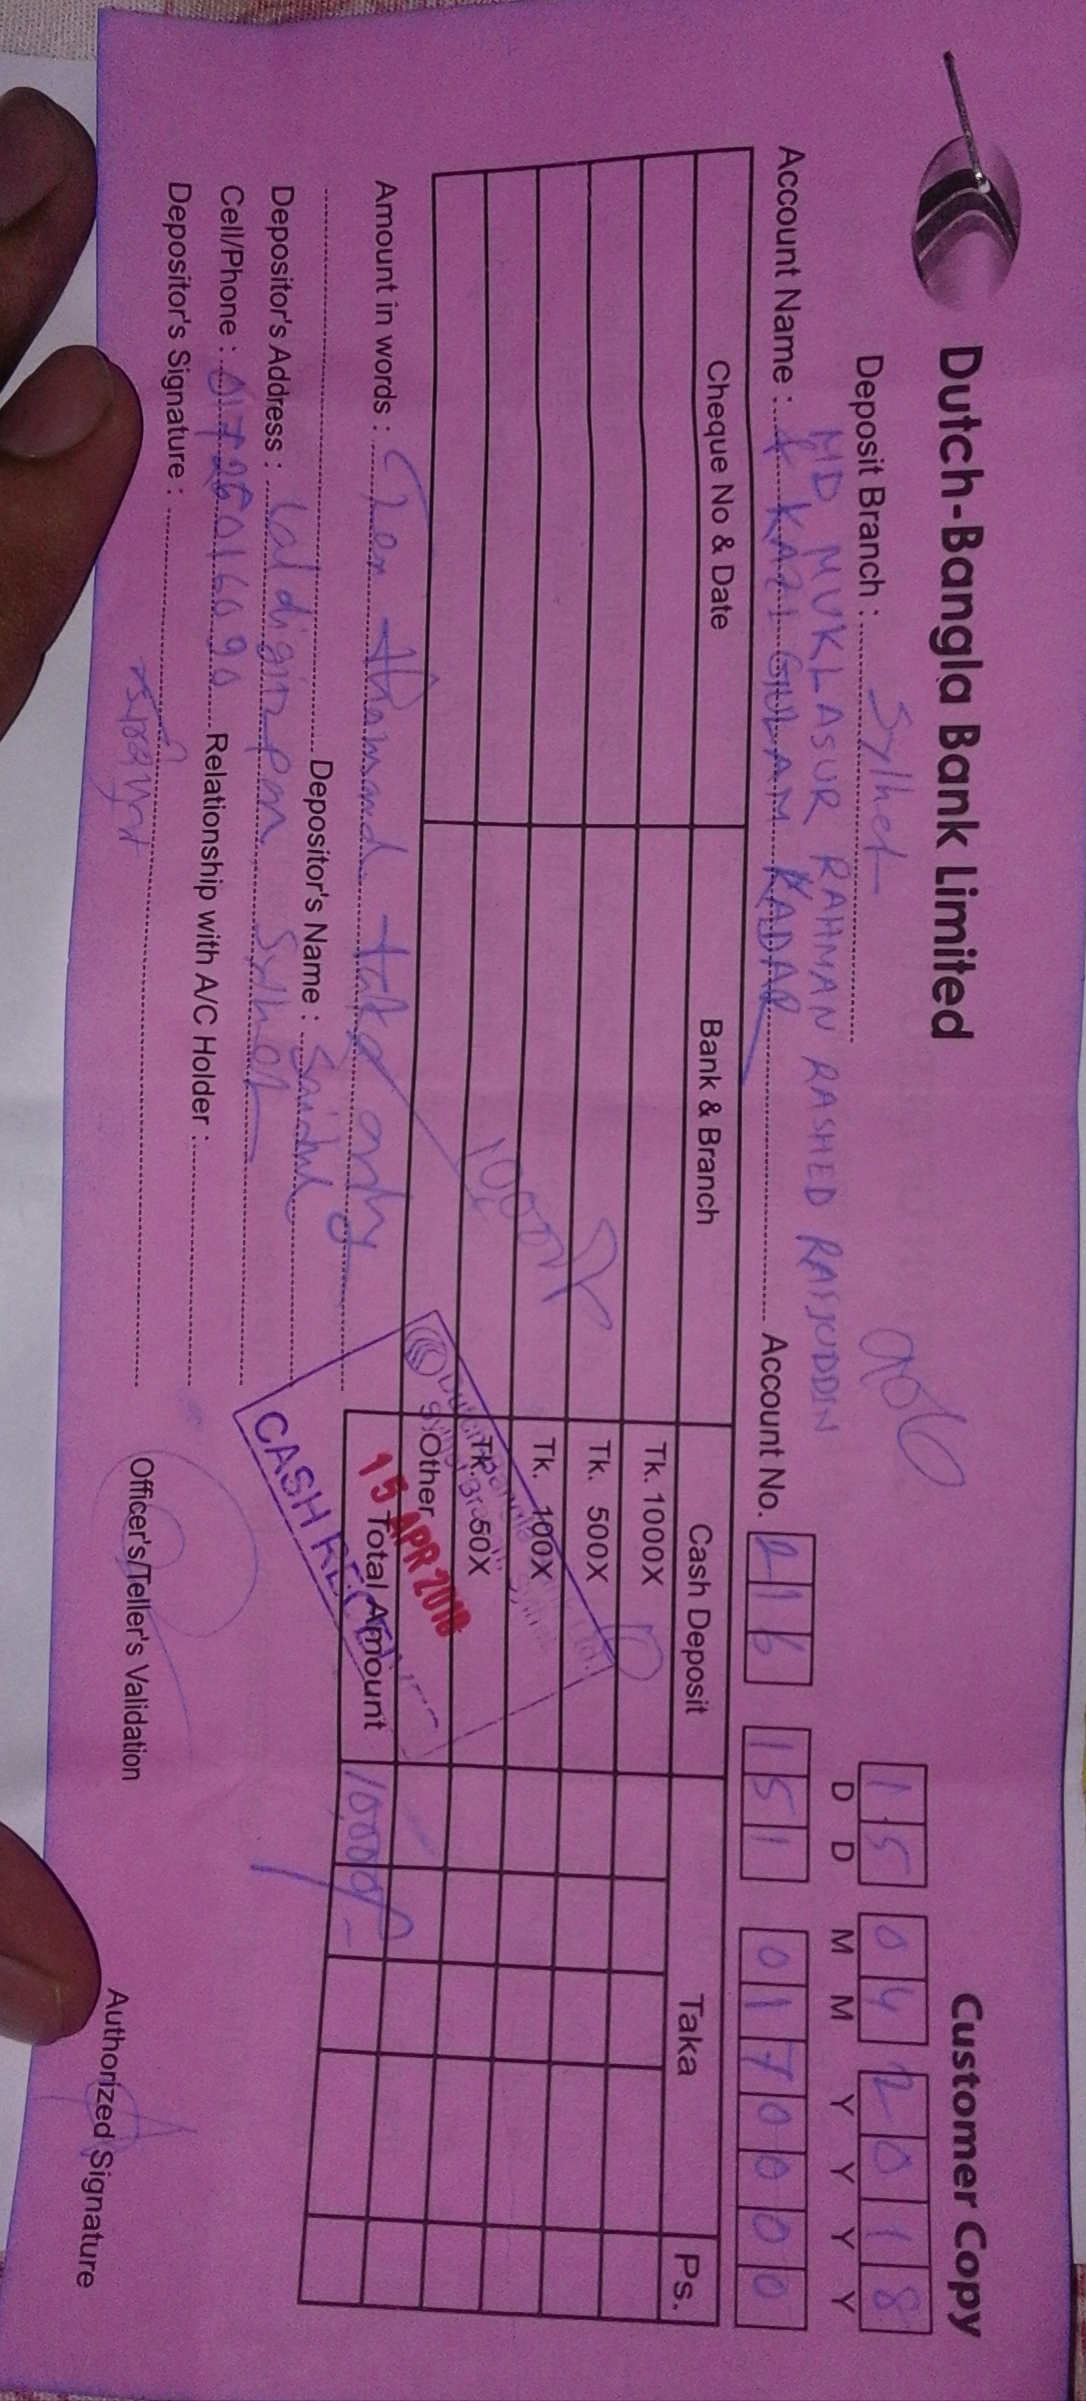 Dutch-Bangla Bank Limited
Customer Copy
Deposit Branch : Sylhet
15 04 2018
D D M M Y Y Y Y
MD MUKLASUR RAHMAN RASHED RAIJUDDIN
Account Name : & KAZI GULAM KADAR Account No. 216 151 0170000
Cheque No & Date Bank & Branch Cash Deposit Taka Ps.
Tk. 1000X 10
Tk. 500X
Tk. 100X
Tk. 50X
Other
Total Amount 10000/-
15 APR 2018
CASH
Amount in words : Ten thousand taka only
Depositor's Name :
Depositor's Address : Laldigirpar Sylhet
Cell/Phone : Relationship with A/C Holder :
Depositor's Signature :
Officer's/Teller's Validation
Authorized Signature